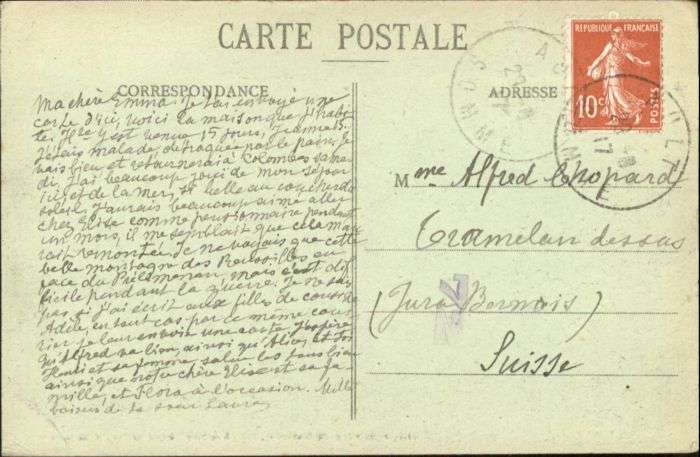 CARTE POSTALE
CORRESPONDANCE
ADRESSE
REPUBLIQUE FRANÇAISE
10c
POSTES
Ma chère Emma. Je t'ai envoyé une
carte d'ici, voici la maison que j'habi
te. J'y venue 15 jours,
J'étais malade, par le pain. Je
vais bien et retournerai à Colombes same
di. J'ai beaucoup joui de mon séjour
ici et de la mer, si belle au coucher du
soleil. J'aurais beaucoup aimé aller
chez Elise comme pensionnaire pendant
un mois, il me semblait que cela m'au
rait remontée. Je ne voyais que cette
belle montagne des en
face du mais c'est dif
ficile pendant la guerre. Je ne sais
pas si j'ai écrit aux filles de cousine
Adèle, en tout cas par ce même cour
rier je leur envoie une carte. J'espère
qu'Alfred va bien, ainsi qu'Alice, et toi
Henri et sa femme, salue les tous bien
ainsi que notre chère Elise et sa fa
mille, et Flora à l'occasion. Mille
baisers de ta sœur Laure.
Mme Alfred Chopard
Tramelan dessus
(Jura Bernois)
Suisse